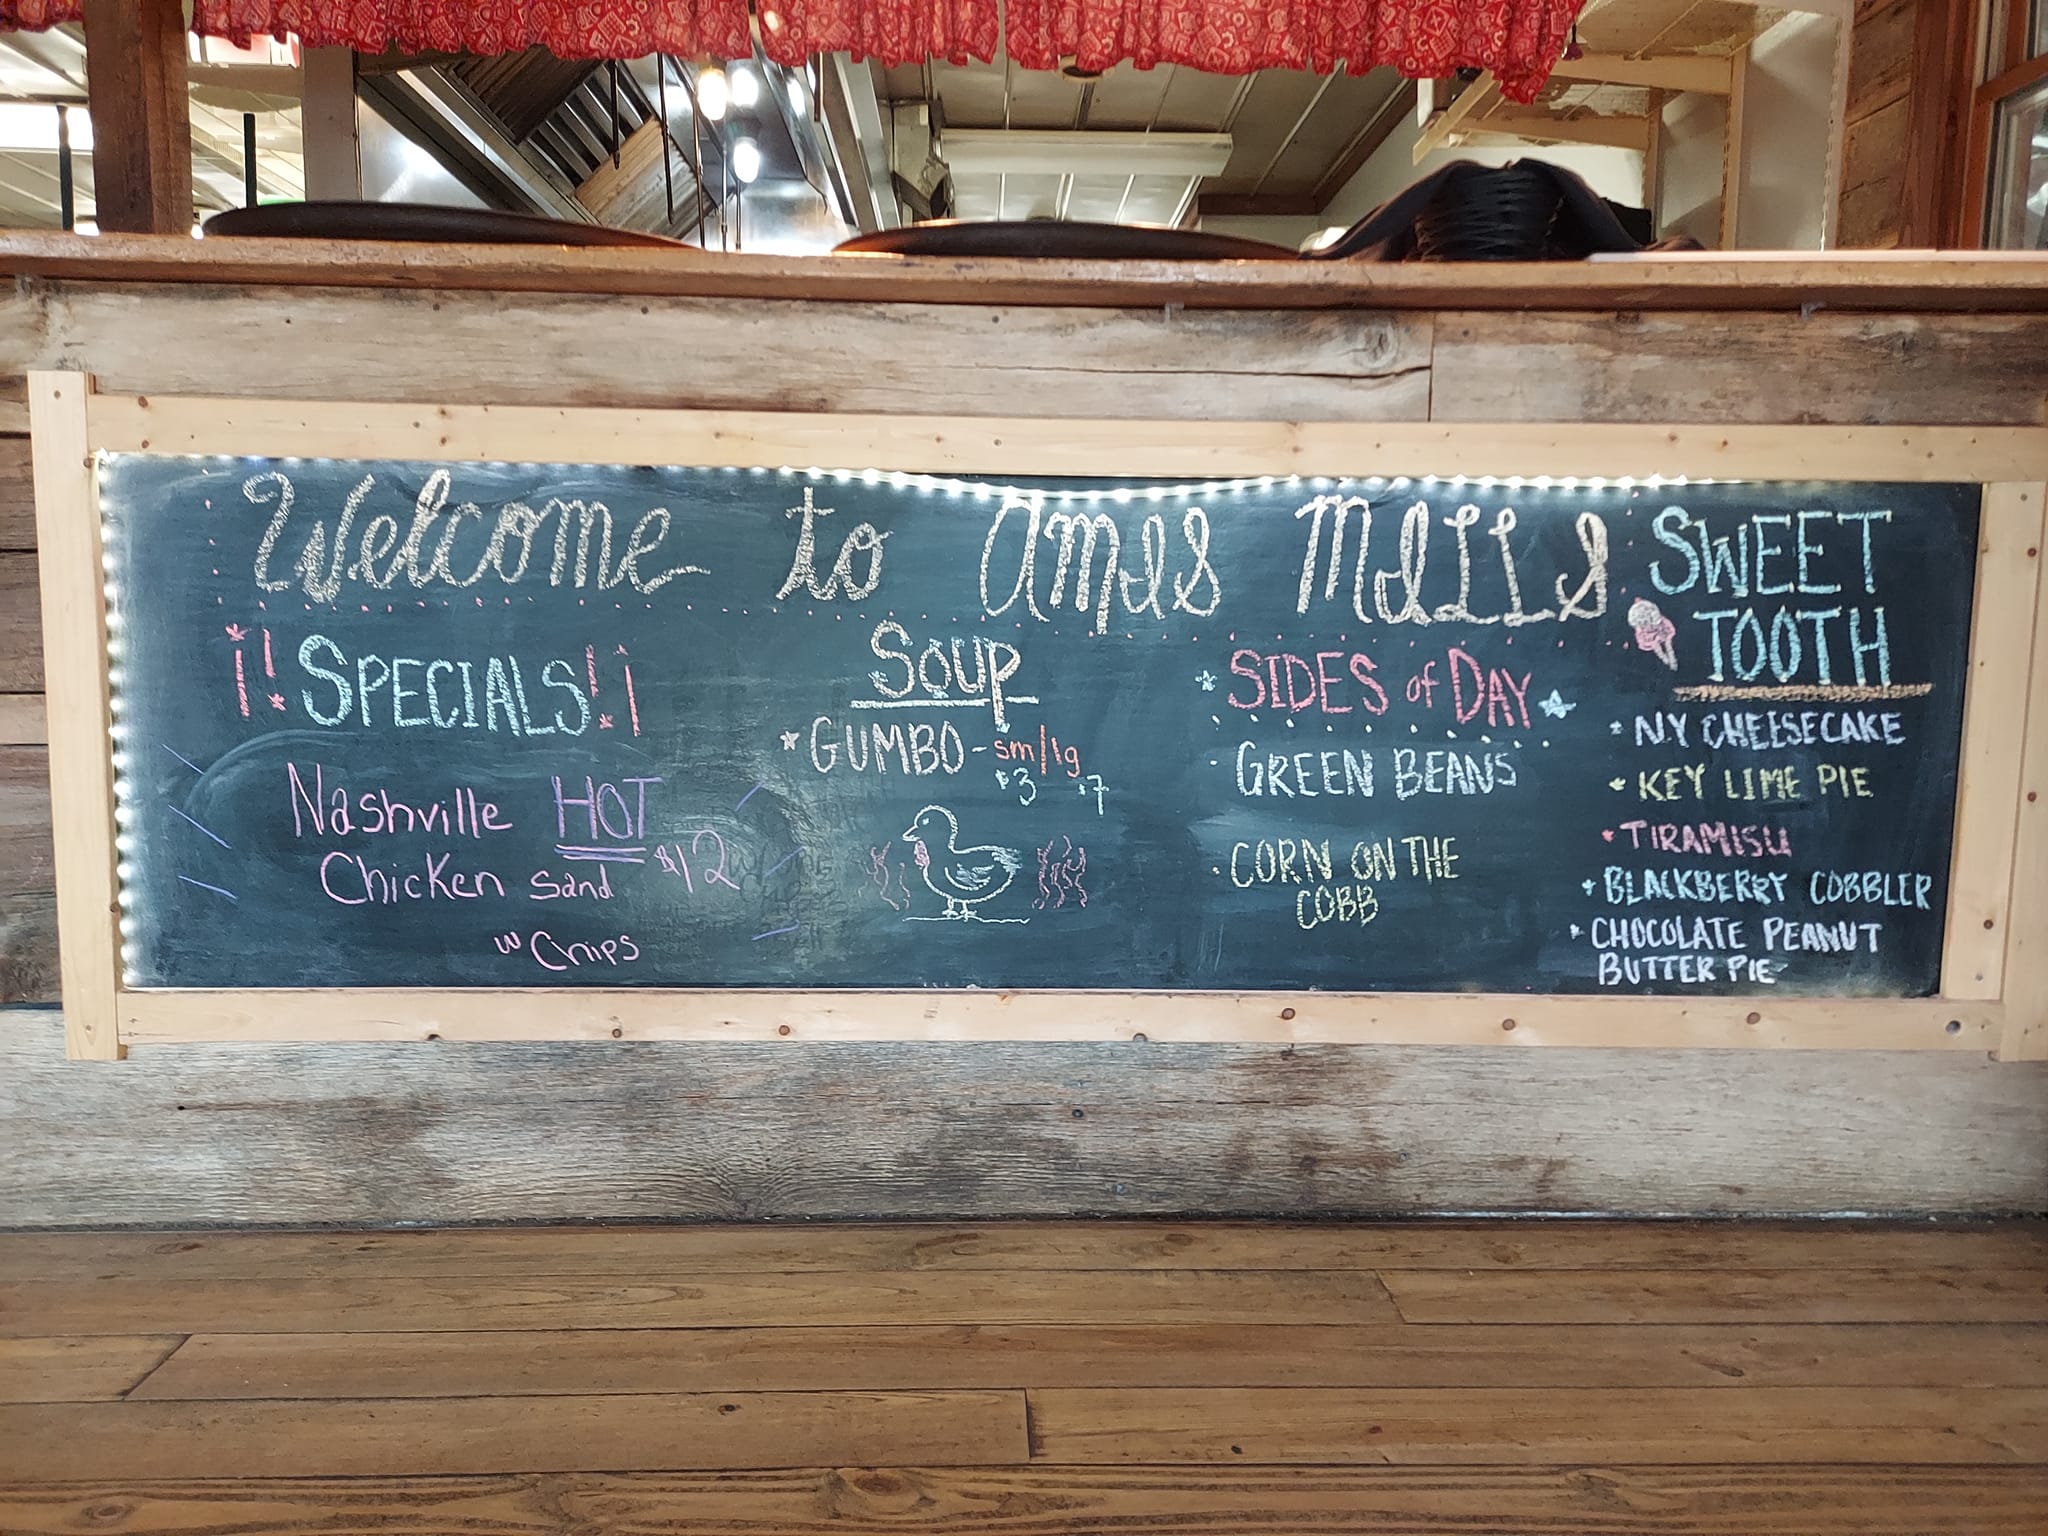 Welcome to Ames Mills
¡! SPECIALS !¡
Nashville HOT
Chicken sand $12
w Chips
SOUP
* GUMBO - sm/lg
$3 $7
* SIDES of DAY *
· GREEN BEANS
· CORN ON THE
COBB
SWEET
TOOTH
* N.Y CHEESECAKE
* KEY LIME PIE
* TIRAMISU
* BLACKBERRY COBBLER
* CHOCOLATE PEANUT
BUTTER PIE